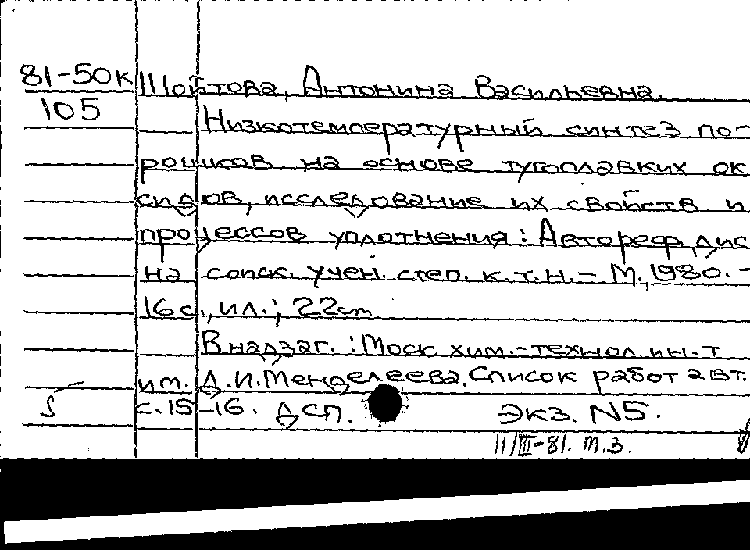 81-50к Шойтова, Антонина Васильевна.
105 Низкотемпературный синтез по-
рошков на основе тугоплавких ок
сидов, исследование их свойств и
процессов уплотнения: Автореф. дис
на соиск. учен. степ. к.т.н. – М., 1980. –
16 с., ил.; 22 см
В надзаг.: Моск хим.-технол ин.т
им. Д.И. Менделеева. Список работ авт.
с. 15-16. ДСП. Экз. N5.
11/III-81. М.З.